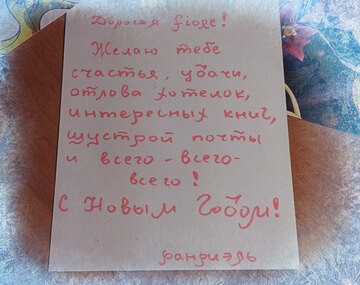 Дорогая fioge!
Желаю тебе
счастья, удачи,
отлова хотелок,
интересных книг,
шустрой почты
и всего-всего-
всего!
С Новым Годом!
ранриэль